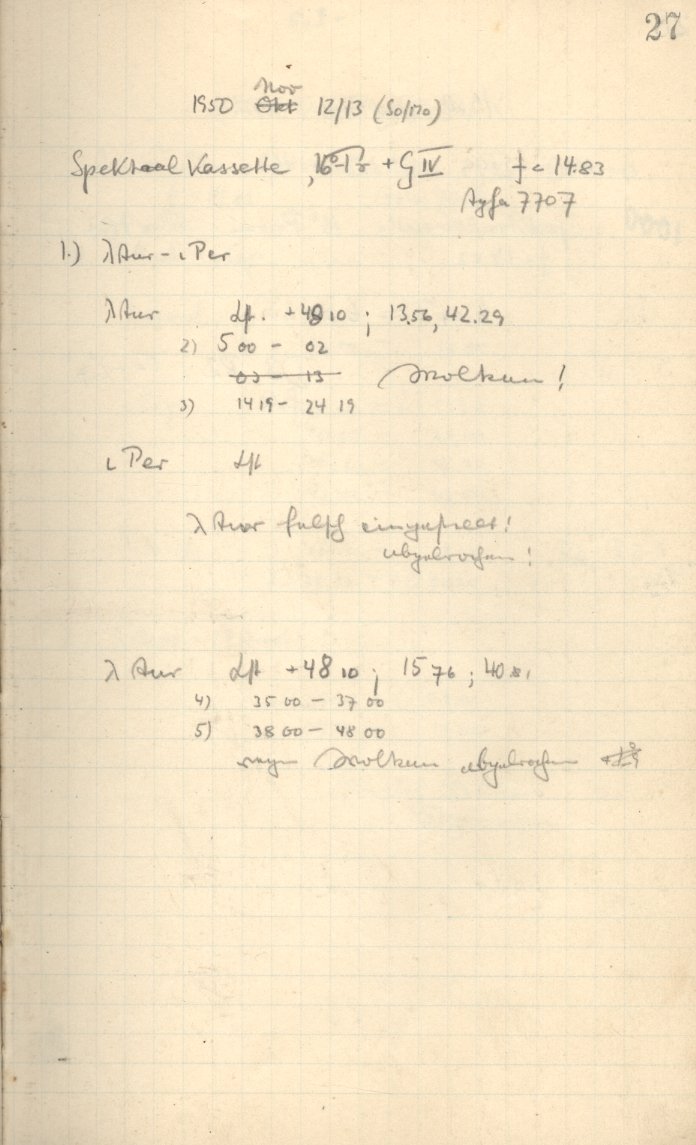 27
Nov
1950 Okt 12/13 (So/Mo)
Spektral Kassette, 16° Pr + G IV f = 14.83
Agfa 7707
1.) λ Aur - ι Per
λ Aur +48 10 ; 13.56, 42.29
2) 5 00 - 02
03 - 13 Wolken!
3) 14 19 - 24 19
ι Per
λ Aur falsch eingestellt!
abgebrochen!
λ Aur +48 10 ; 15 76 ; 40 81
4) 35 00 - 37 00
5) 38 00 - 48 00
wegen Wolken abgebrochen